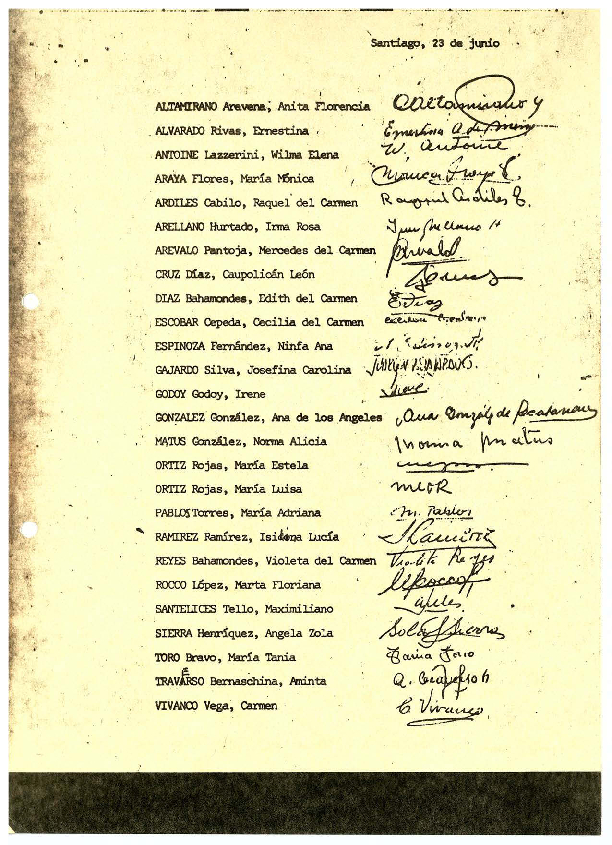 Santiago, 23 de junio
ALTAMIRANO Aravena, Anita Florencia AAltamirano y
ALVARADO Rivas, Ernestina Ernestina A de
ANTOINE Lazzerini, Wilma Elena W. Antoine
ARAYA Flores, María Mónica Mónica Araya F.
ARDILES Cabilo, Raquel del Carmen Raquel Ardiles C.
ARELLANO Hurtado, Irma Rosa Irma Arellano H
AREVALO Pantoja, Mercedes del Carmen
CRUZ Díaz, Caupolicán León
DIAZ Bahamondes, Edith del Carmen EDiaz
ESCOBAR Cepeda, Cecilia del Carmen
ESPINOZA Fernández, Ninfa Ana
GAJARDO Silva, Josefina Carolina
GODOY Godoy, Irene Irene
GONZALEZ González, Ana de los Angeles Ana González de Recabarren
MATUS González, Norma Alicia Norma Matus
ORTIZ Rojas, María Estela
ORTIZ Rojas, María Luisa MLOR
PABLOS Torres, María Adriana M. Pablos
RAMIREZ Ramírez, Isidona Lucía Ramírez
REYES Bahamondes, Violeta del Carmen Violeta Reyes
ROCCO López, Marta Floriana MRocco
SANTELICES Tello, Maximiliano
SIERRA Henríquez, Angela Zola Sola Sierra
TORO Bravo, María Tania Tania Toro
TRAVERSO Bernaschina, Aminta A. Traverso
VIVANCO Vega, Carmen C Vivanco